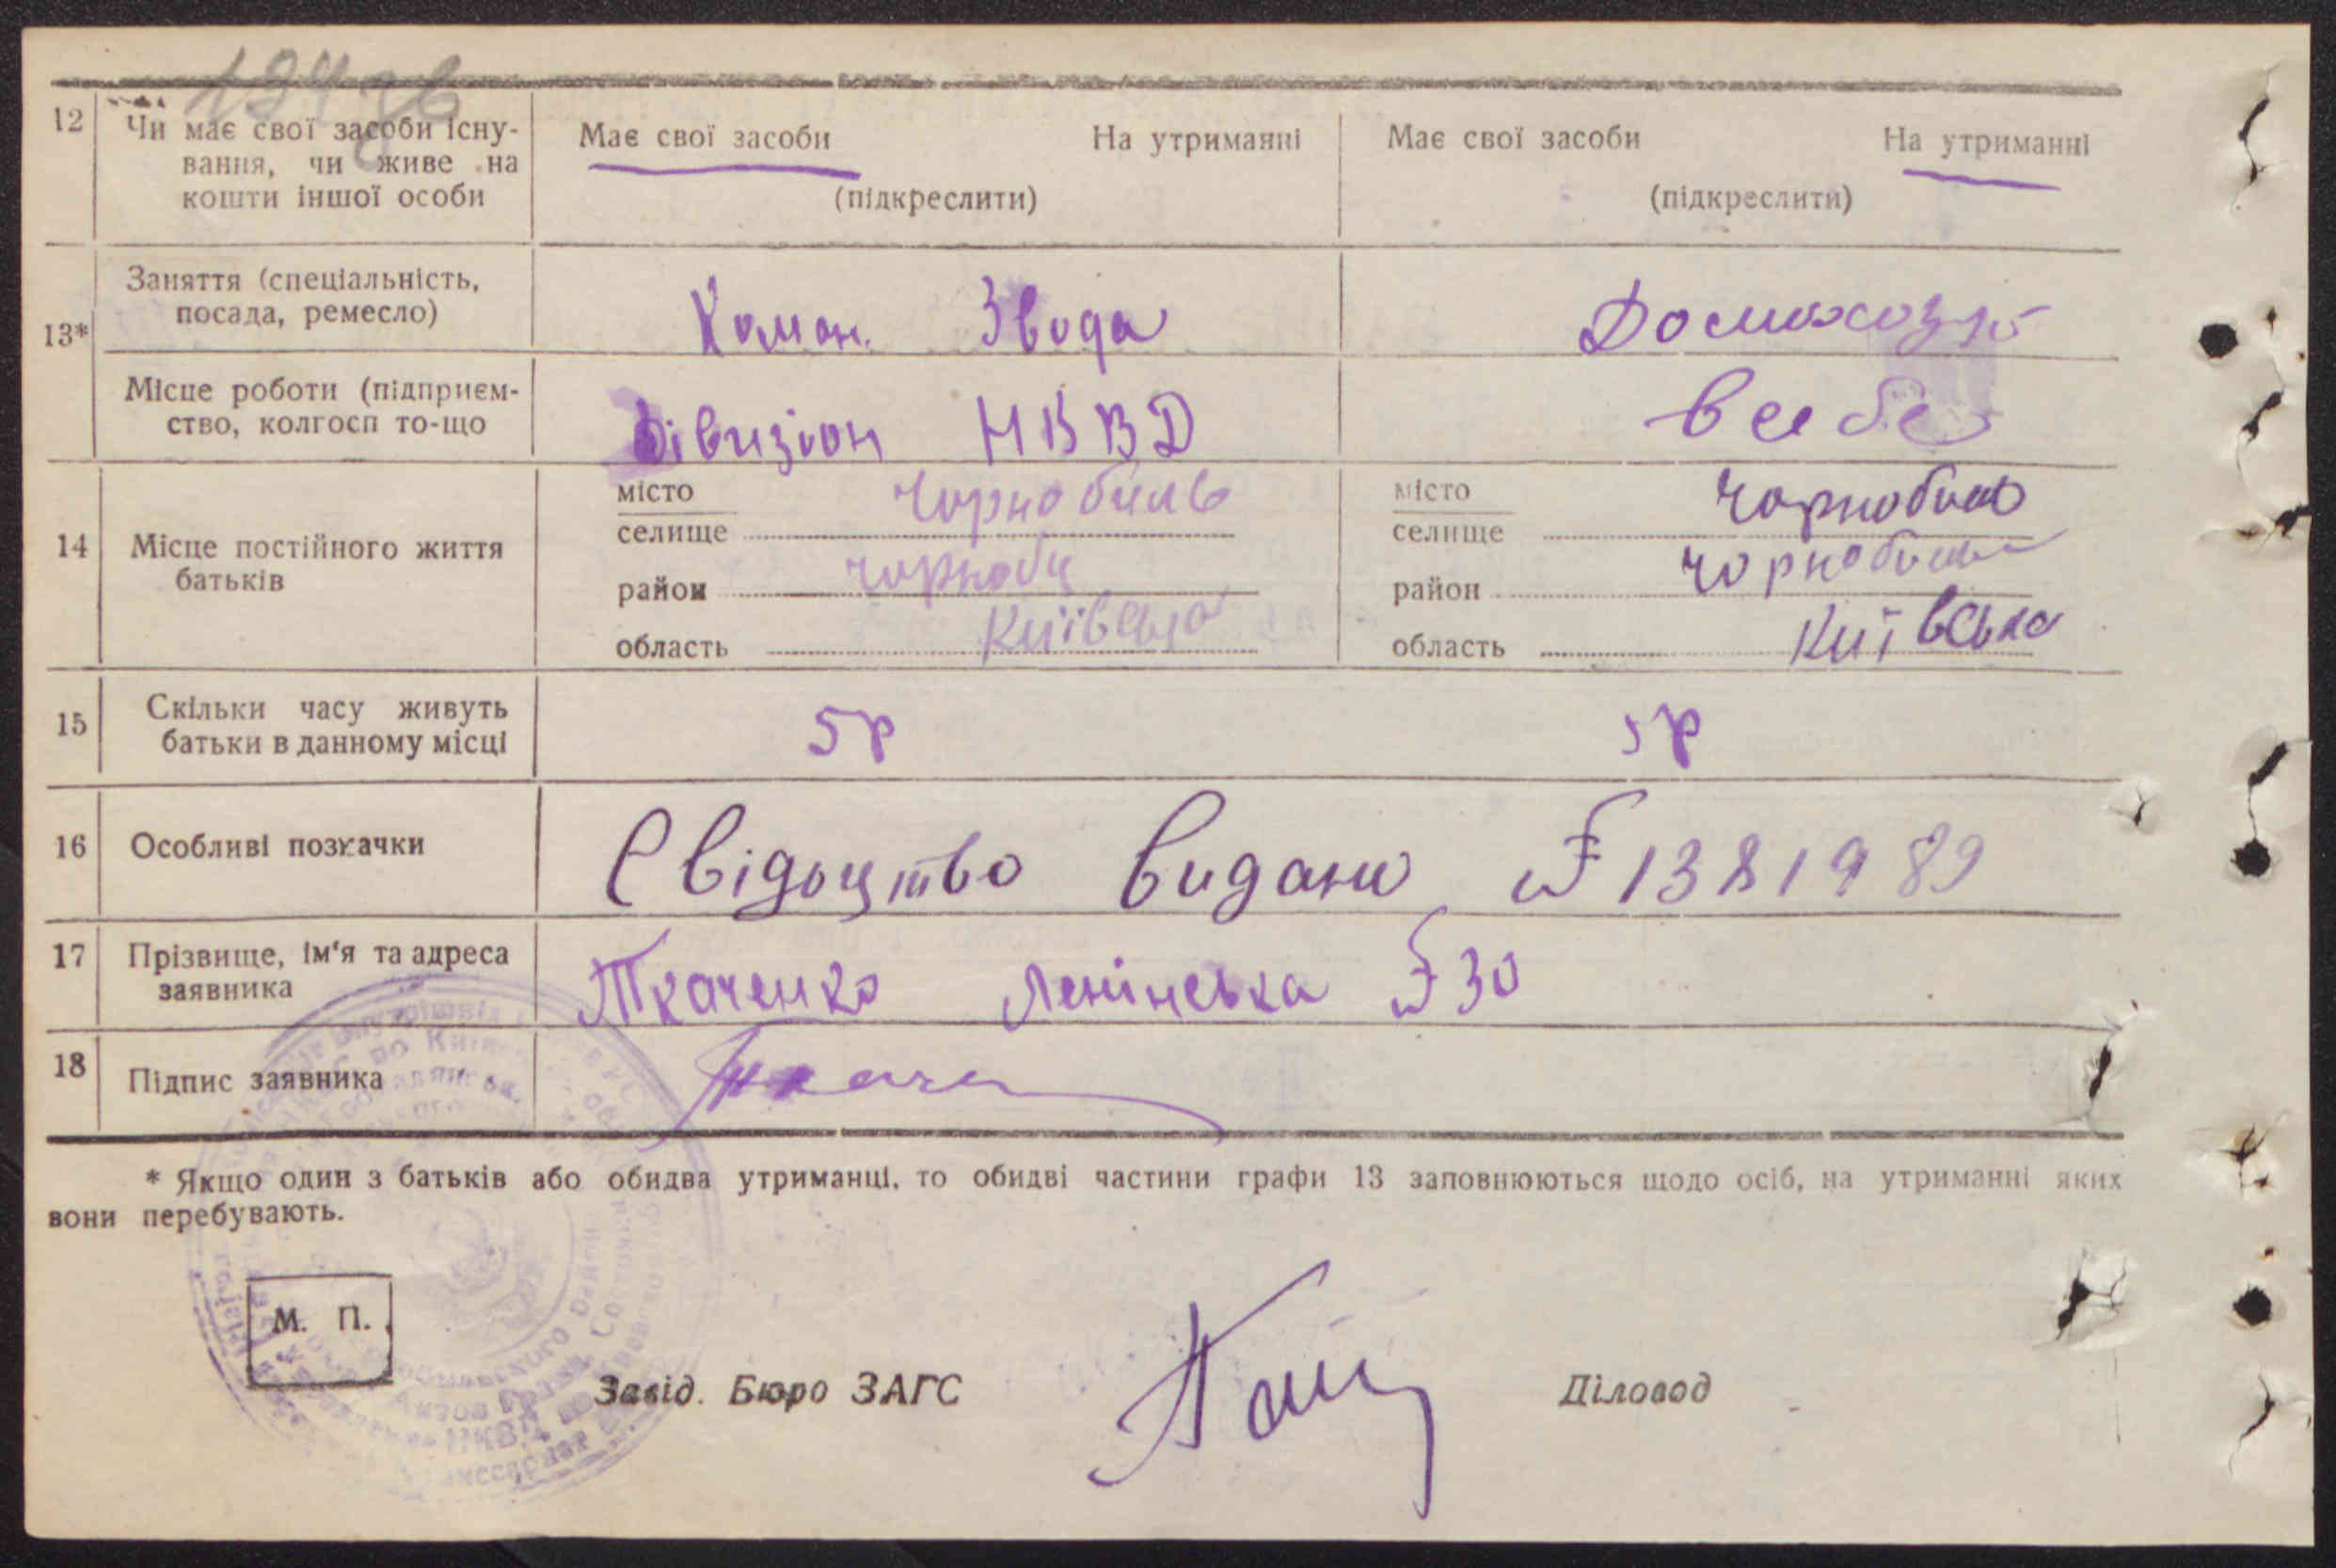 12 Чи має свої засоби існу-
вання, чи живе на
кошти іншої особи
Має свої засоби На утриманні
(підкреслити)
Має свої засоби На утриманні
(підкреслити)
13*
Заняття (спеціальність,
посада, ремесло)
Коман. Звода
Домохозяй
Місце роботи (підприєм-
ство, колгосп то-що
Дівизіон НКВД
в себе
14 Місце постійного життя
батьків
місто Чорнобиль
селище
район Чорноби
область Київська
місто Чорнобиль
селище
район Чорнобильс
область Київська
15 Скільки часу живуть
батьки в данному місці
5р 5р
16 Особливі позначки
Свідоцтво видано № 1381989
17 Прізвище, ім'я та адреса
заявника
Ткаченко Ленінська № 30
18 Підпис заявника
Ткаче
* Якщо один з батьків або обидва утриманці, то обидві частини графи 13 заповнюються щодо осіб, на утриманні яких
вони перебувають.
М. П.
Завід. Бюро ЗАГС
Діловод